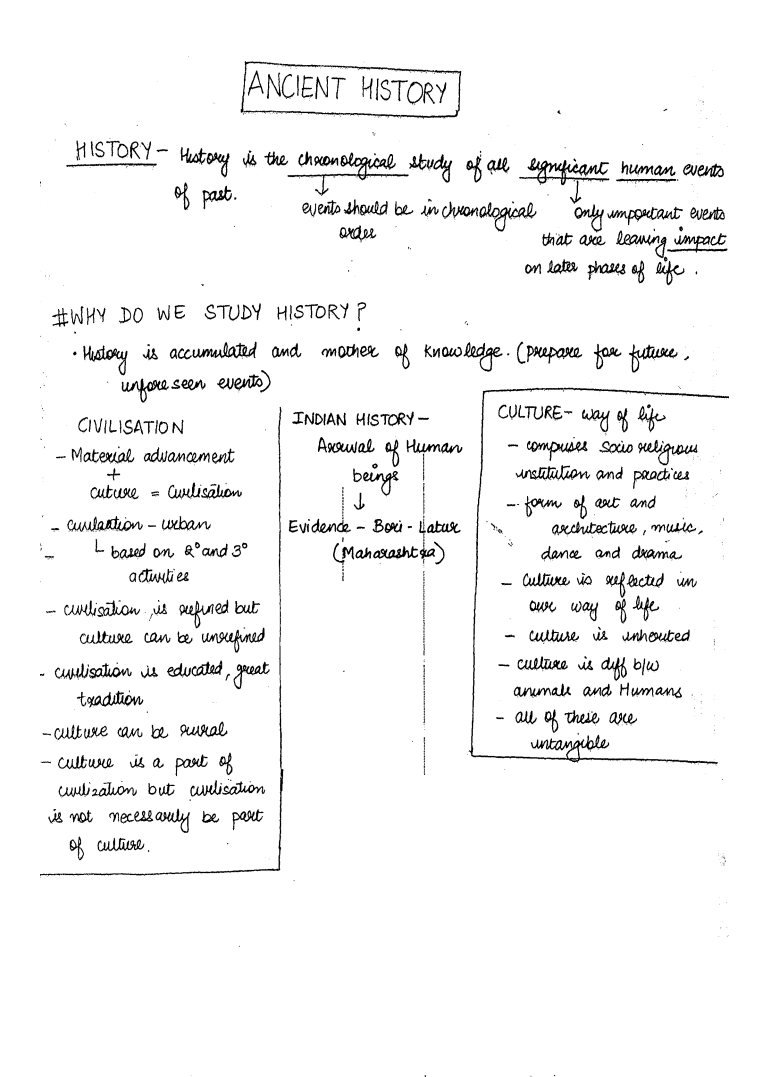 ANCIENT HISTORY
HISTORY - History is the chronological study of all significant human events
of past.
events should be in chronological
order
only important events
that are leaving impact
on later phases of life.
#WHY DO WE STUDY HISTORY?
· History is accumulated and mother of knowledge. (prepare for future,
unforeseen events)
CIVILISATION
- Material advancement
+
cuture = Civilisation
- civilastion - urban
-
└ based on 2° and 3°
activities
- civilisation is refined but
culture can be unrefined
- civilisation is educated, great
tradition
- culture can be rural
- culture is a part of
civilization but civilisation
is not necessarily be part
of culture.
INDIAN HISTORY -
Arrival of Human
beings
↓
Evidence - Bori - Latur
(Maharashtra)
CULTURE - way of life
- comprises socio religious
institution and practices
- form of art and
architecture, music,
dance and drama
- Culture is reflected in
our way of life
- culture is inherited
- culture is diff b/w
animals and Humans
- all of these are
untangible